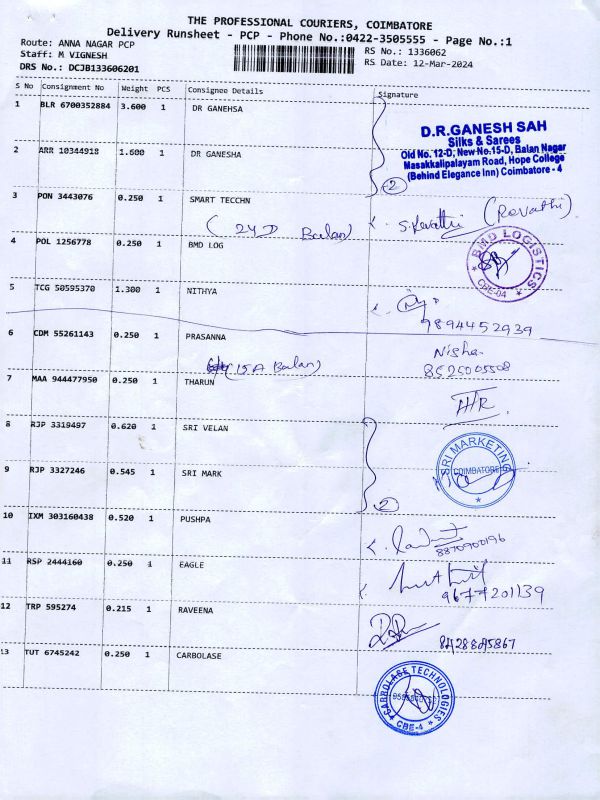 THE PROFESSIONAL COURIERS, COIMBATORE
Delivery Runsheet - PCP - Phone No.:0422-3505555 - Page No.:1
Route: ANNA NAGAR PCP
RS No.: 1336062
Staff: M VIGNESH
RS Date: 12-Mar-2024
DRS No.: DCJB133606201
S No Consignment No Weight PCS Consignee Details Signature
1 BLR 6700352884 3.600 1 DR GANEHSA
D.R.GANESH SAH
Silks & Sarees
Old No. 12-D, New No.15-D, Balan Nagar
Masakkalipalayam Road, Hope College
(Behind Elegance Inn) Coimbatore - 4
2 ARR 10344918 1.600 1 DR GANESHA
2
3 PON 3443076 0.250 1 SMART TECCHN
S. Revathi (Revathi)
(24 D Balan)
4 POL 1256778 0.250 1 BMD LOG
BMD LOGISTICS
CBE-04
5 TCG 50595370 1.300 1 NITHYA
9894452939
6 CDM 55261143 0.250 1 PRASANNA
Nisha
(15 A Balan)
8525005508
7 MAA 944477950 0.250 1 THARUN
8 RJP 3319497 0.620 1 SRI VELAN
SRI MARKETING
COIMBATORE
9 RJP 3327246 0.545 1 SRI MARK
2
10 IXM 303160438 0.520 1 PUSHPA
8870900196
11 RSP 2444160 0.250 1 EAGLE
9677201139
12 TRP 595274 0.215 1 RAVEENA
8428845867
13 TUT 6745242 0.250 1 CARBOLASE
CARBOLASE TECHNOLOGIES
CBE-4